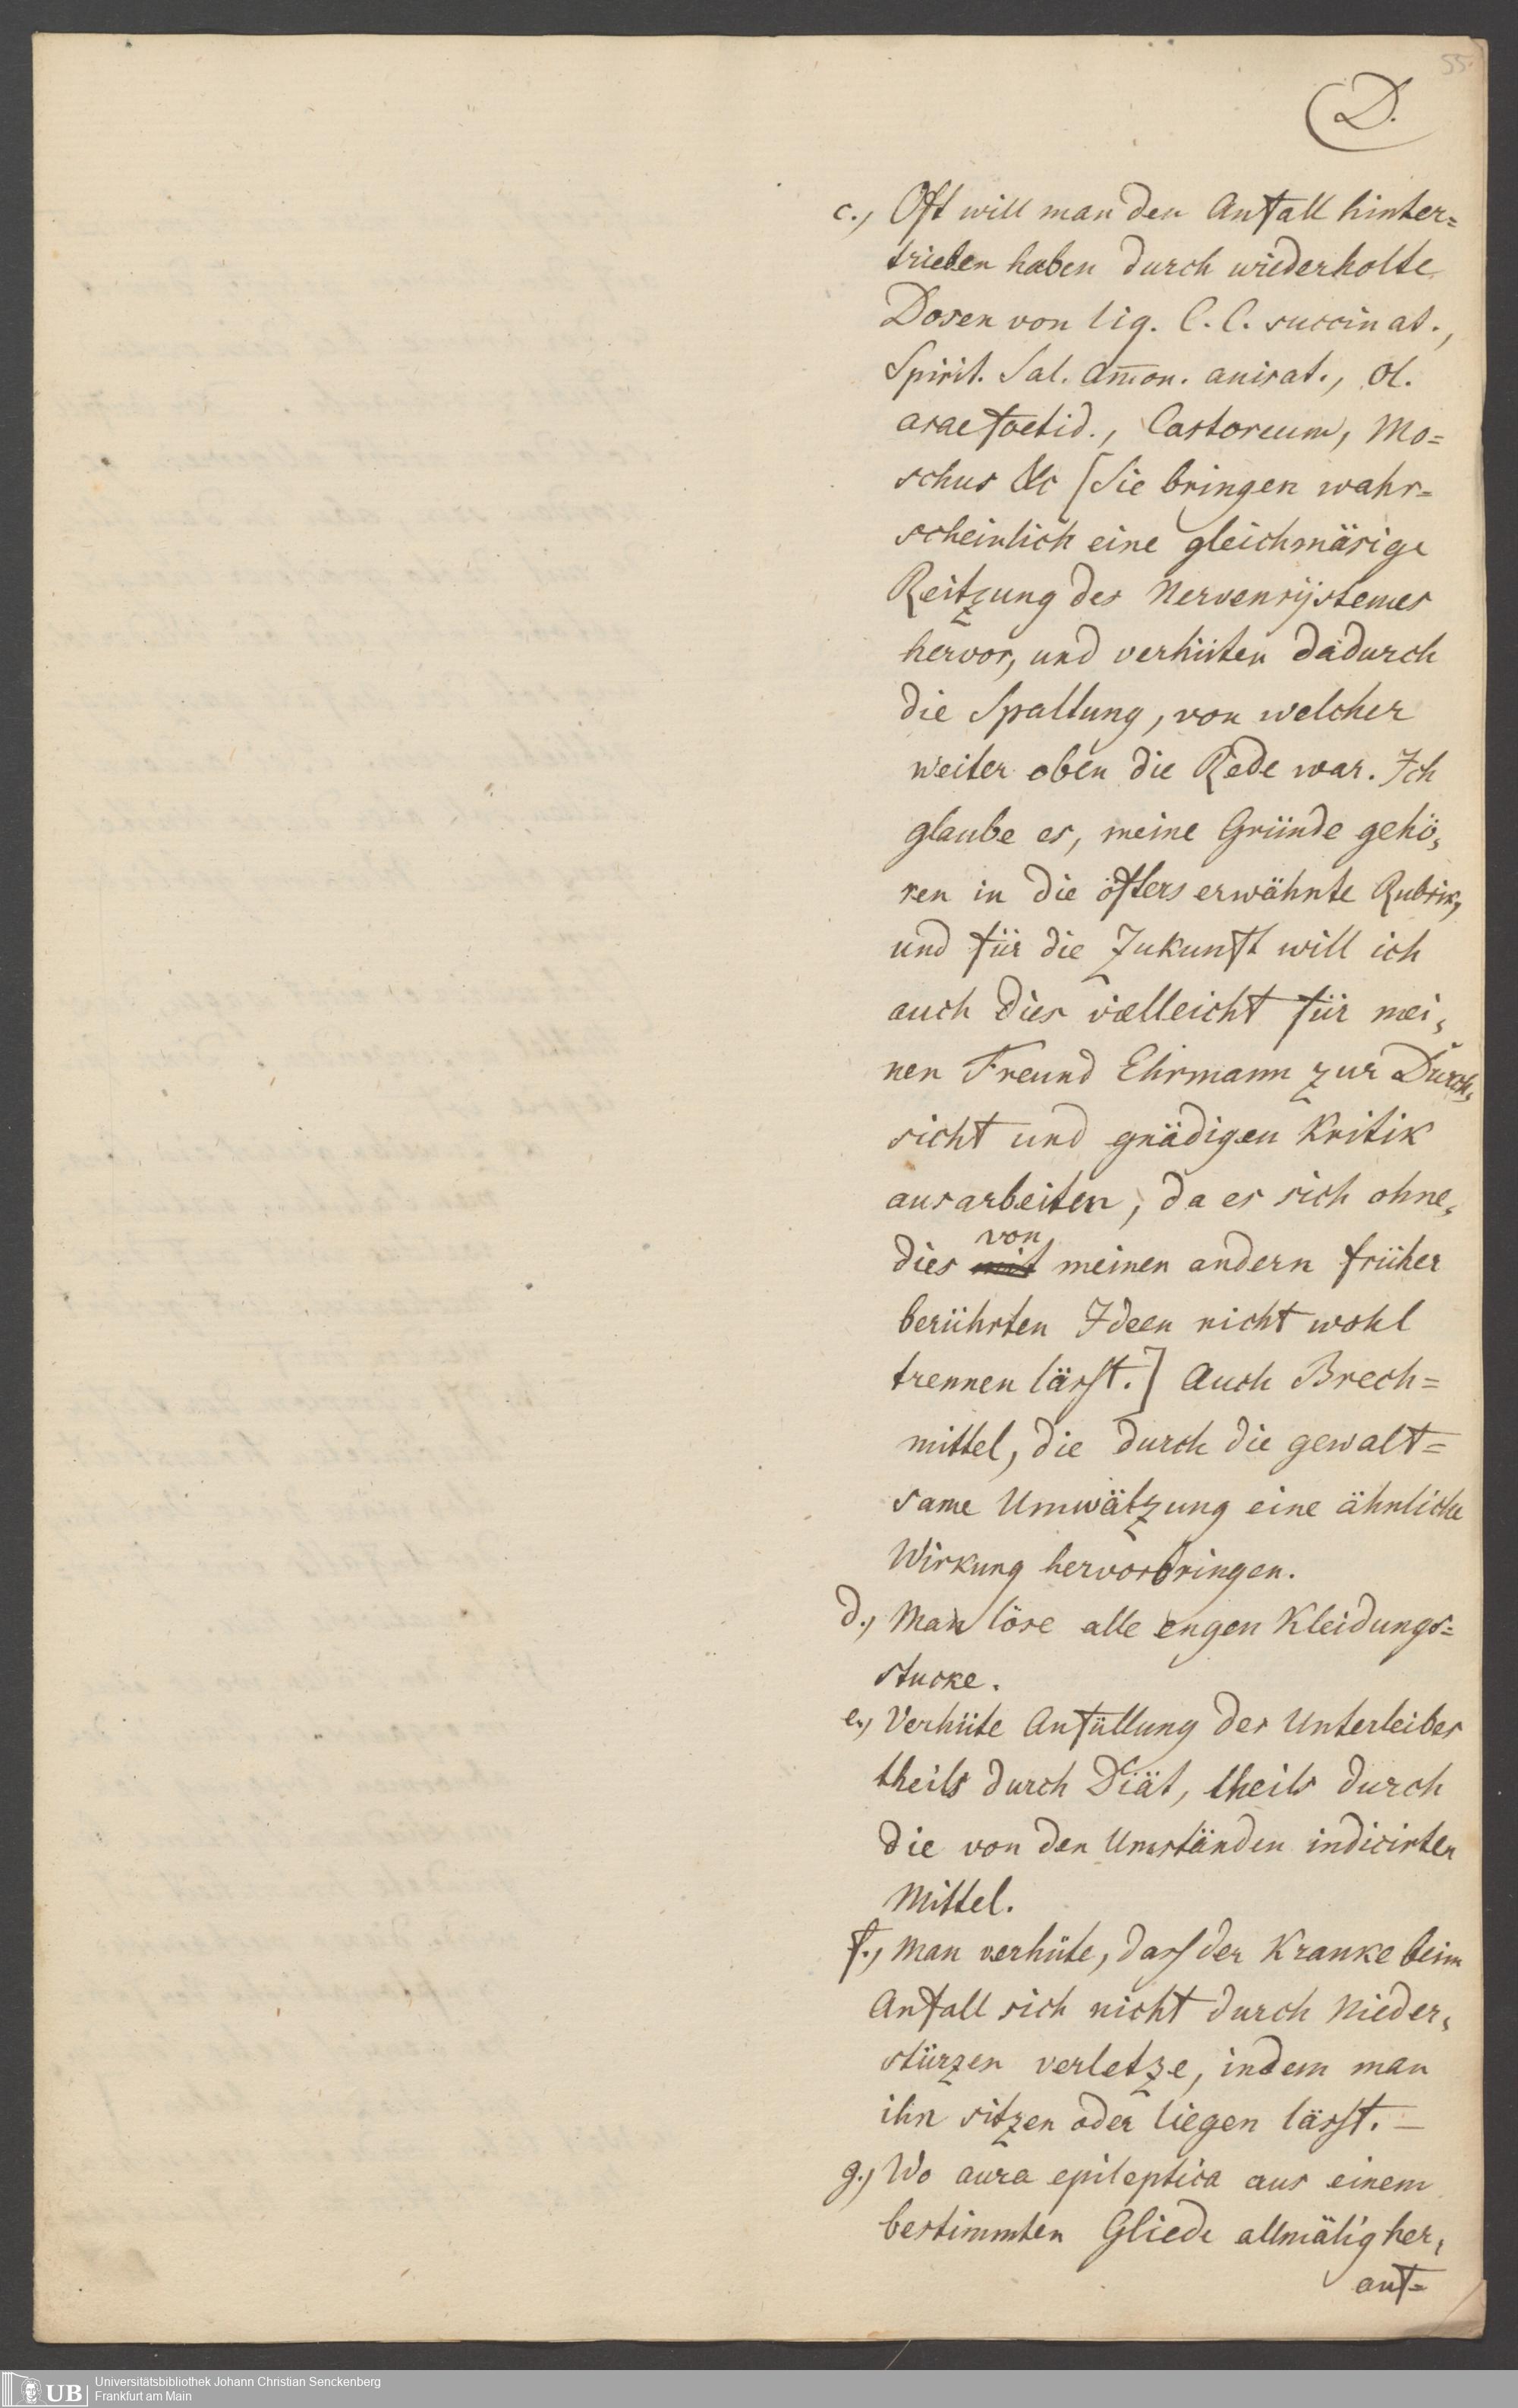 55.
D.
c., Oft will man den Anfall hinter=
trieben haben durch wiederholte
Dosen von liq. C. C. succinat.,
Spirit. Sal. Am̅on. anisat., Ol.
asae foetid., Castoreum, Mo=
schus &c [Sie bringen wahr=
scheinlich eine gleichmäsige
Reitzung des Nervensÿstemes
hervor, und verhüten dadurch
die Spaltung, von welcher
weiter oben die Rede war. Ich
glaube es, meine Gründe gehö,
ren in die öfters erwähnte Rubrik,
und für die Zukunft will ich
auch dies vielleicht für mei,
nen Freund Ehrmann zur Durch,
sicht und gnädigen Kritik
ausarbeiten, da es sich ohne,
von
dies mit meinen andern früher
berührten Ideen nicht wohl
trennen lässt.] Auch Brech=
mittel, die durch die gewalt=
same Umwälzung eine ähnliche
Wirkung hervorbringen.
d., Man löse alle engen Kleidungs=
stucke.
e., Verhüte Anfüllung des Unterleibes
theils durch Diät, theils durch
die von den Umständen indicirten
Mittel.
f., Man verhüte, dass der Kranke beim
Anfall sich nicht durch Nieder,
stürzen verletze, indem man
ihn sitzen oder liegen lässt. —
g., Wo aura epileptica aus einem
bestimmten Gliede allmälig her,
auf=
UB
Universitätsbibliothek Johann Christian Senckenberg
Frankfurt am Main